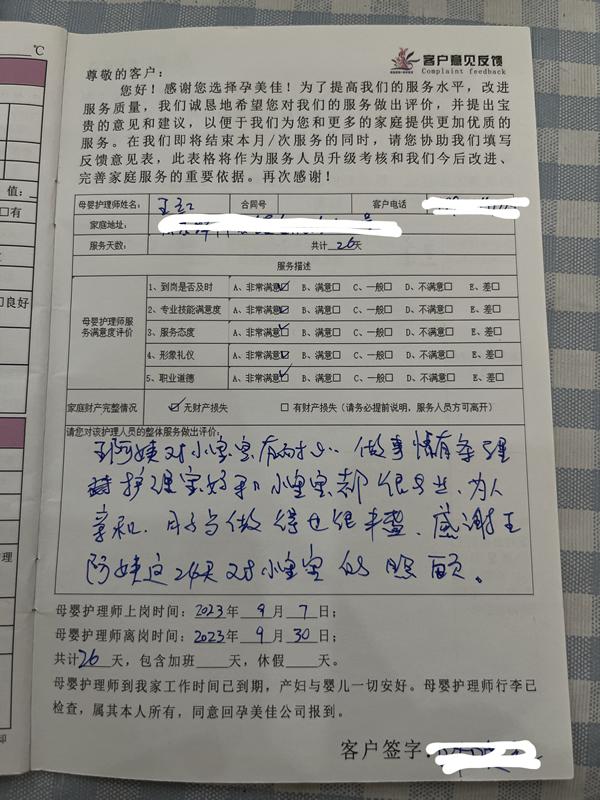 ℃
值：
□有
良好
理
印
客户意见反馈
Complaint feedback
尊敬的客户：
您好！感谢您选择孕美佳！为了提高我们的服务水平，改进
服务质量，我们诚恳地希望您对我们的服务做出评价，并提出宝
贵的意见和建议，以便于我们为您和更多的家庭提供更加优质的
服务。在我们即将结束本月/次服务的同时，请您协助我们填写
反馈意见表，此表格将作为服务人员升级考核和我们今后改进、
完善家庭服务的重要依据。再次感谢！
母婴护理师姓名： 王红 合同号 客户电话
家庭地址：
服务天数： 共计26天
服务描述
母婴护理师服务满意度评价
1、到岗是否及时 A、非常满意☑ B、满意□ C、一般□ D、不满意□ E、差□
2、专业技能满意度 A、非常满意☑ B、满意□ C、一般□ D、不满意□ E、差□
3、服务态度 A、非常满意☑ B、满意□ C、一般□ D、不满意□ E、差□
4、形象礼仪 A、非常满意☑ B、满意□ C、一般□ D、不满意□ E、差□
5、职业道德 A、非常满意☑ B、满意□ C、一般□ D、不满意□ E、差□
家庭财产完整情况 ☑ 无财产损失 □ 有财产损失（请务必提前说明，服务人员方可离开）
请您对该护理人员的整体服务做出评价：
王阿姨对小宝宝有耐心 做事情有条理
护理宝妈和小宝宝都很专业、为人
亲和、月子餐做得也很丰盛、感谢王
阿姨这26天对小宝宝的照顾。
母婴护理师上岗时间：2023年 9 月 7 日；
母婴护理师离岗时间：2023年 9 月 30 日；
共计26天，包含加班 天，休假 天。
母婴护理师到我家工作时间已到期，产妇与婴儿一切安好。母婴护理师行李已
检查，属其本人所有，同意回孕美佳公司报到。
客户签字：